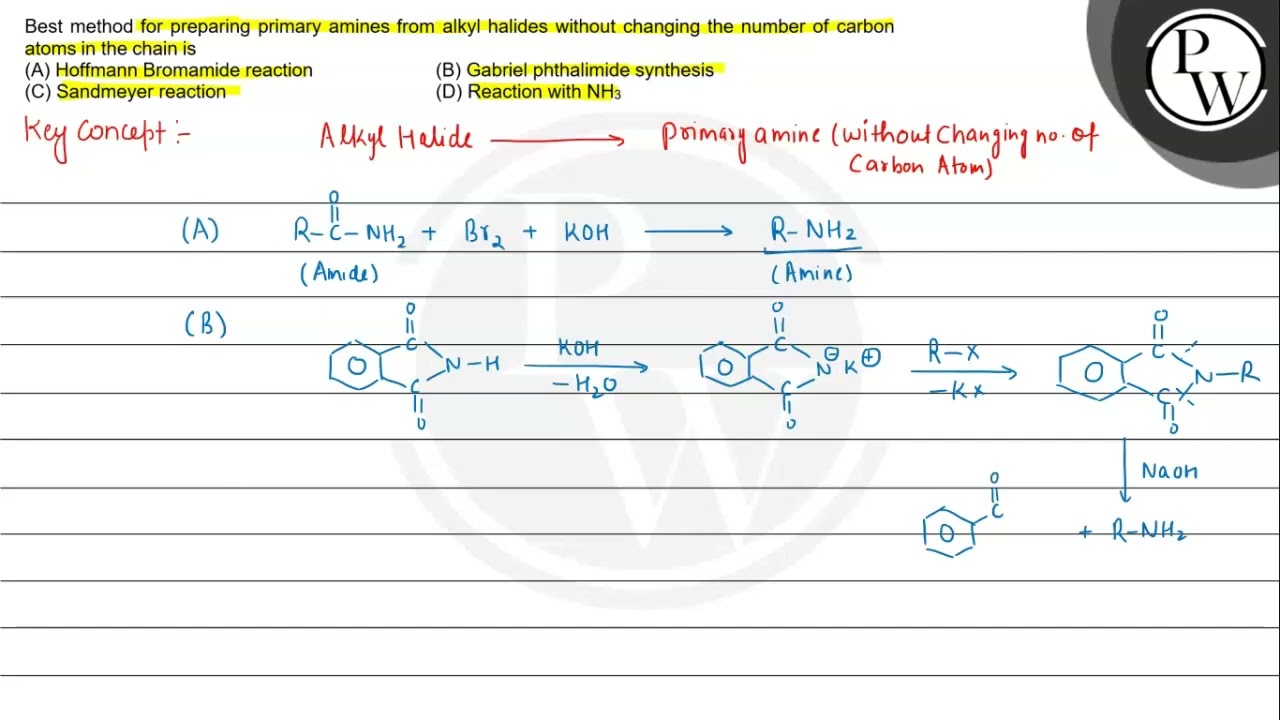 Best method for preparing primary amines from alkyl halides without changing the number of carbon
atoms in the chain is
(A) Hoffmann Bromamide reaction (B) Gabriel phthalimide synthesis
(C) Sandmeyer reaction (D) Reaction with NH₃
P
W
Key Concept :- Alkyl Halide ⟶ Primary amine (Without Changing no. of
Carbon Atom)
O
(A) R – C – NH₂ + Br₂ + KOH ⟶ R – NH₂
(Amide) (Amine)
(B)
O O O
C C C
KOH R – X
O N – H O N ⊖ K ⊕ O N – R
– H₂O – KX
C C C
O O O
NaOH
O
C
O + R – NH₂